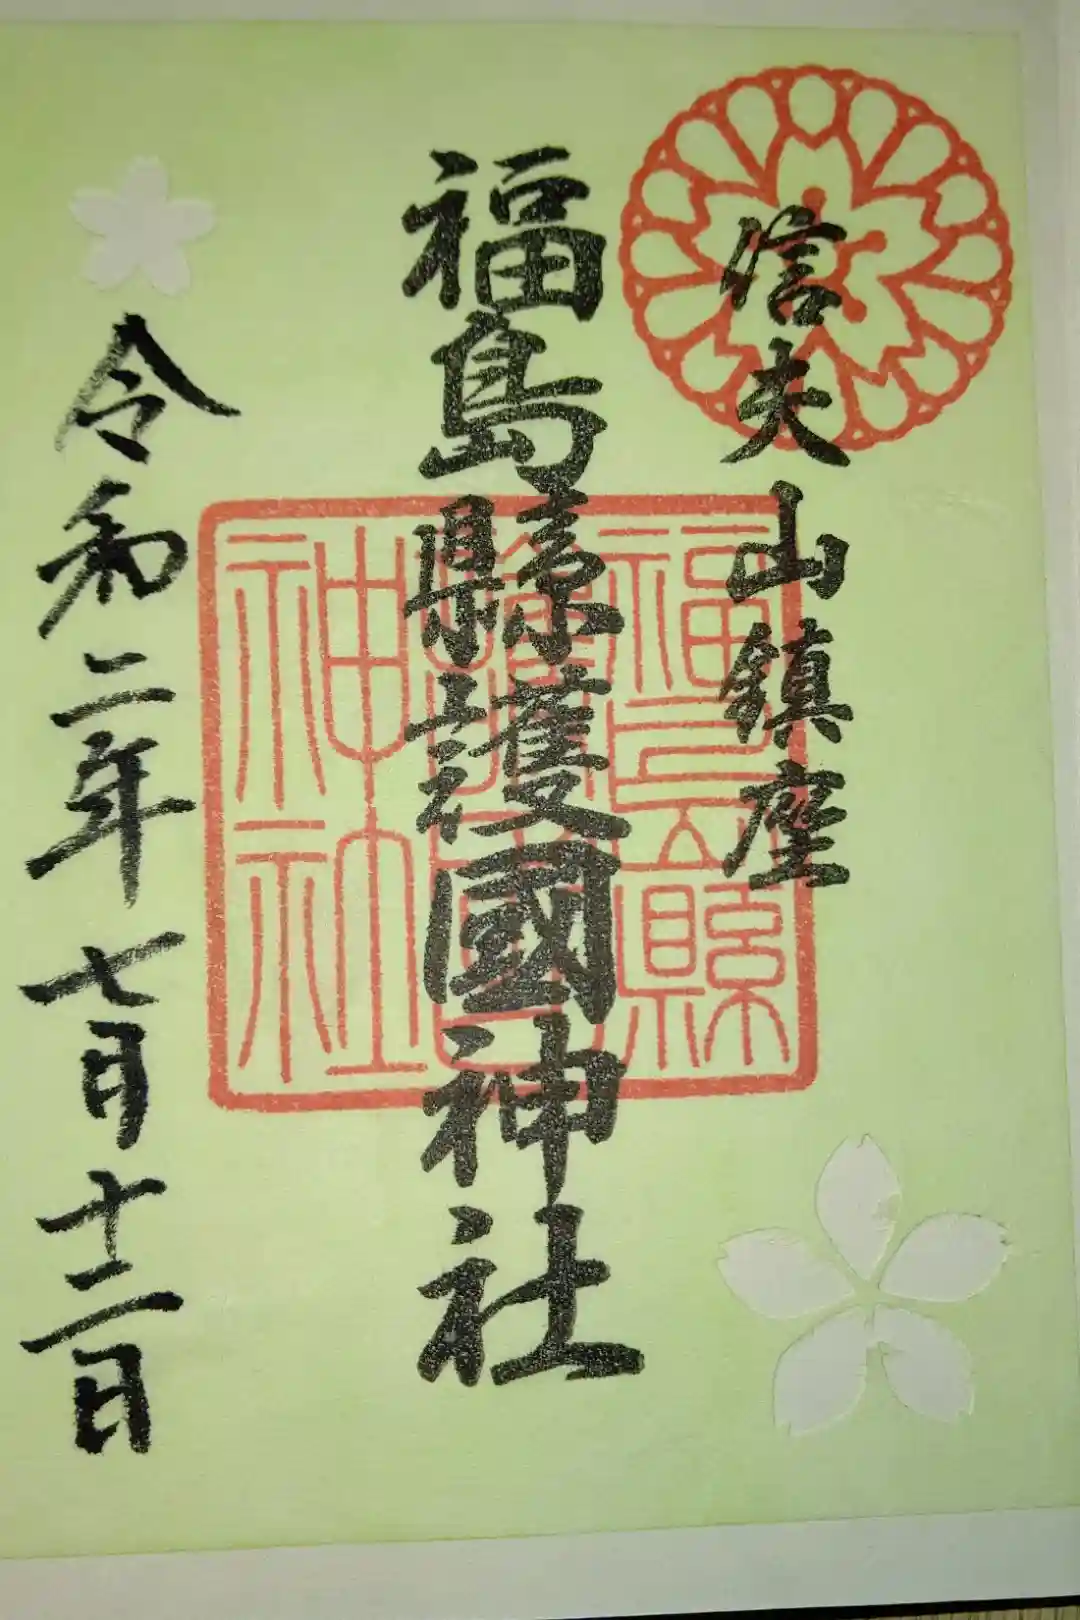 信夫山鎮座
福島縣護國神社
福島縣
護國
神社
令和二年七月十二日